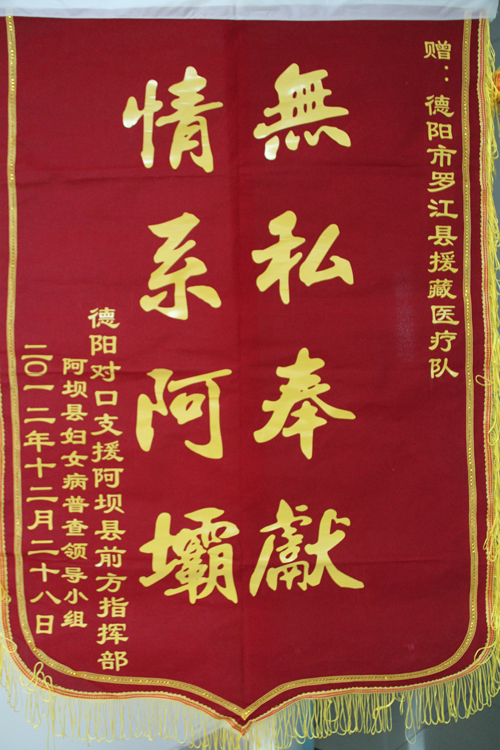 赠：德阳市罗江县援藏医疗队
無私奉獻
情系阿壩
德阳对口支援阿坝县前方指挥部
阿坝县妇女病普查领导小组
二〇一二年十二月二十八日